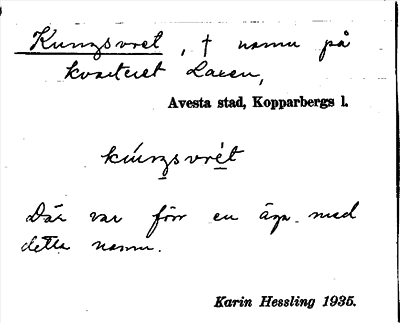 Kungsvret, † namn på
kvarteret Laxen,
Avesta stad, Kopparbergs l.
kúŋsvrét
Där var förr en äga med
detta namn.
Karin Hessling 1935.